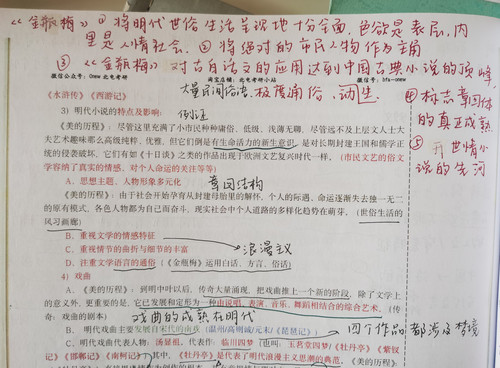 《金瓶梅》①将明代世俗生活呈现地十分全面，色欲是表层，内
里是人情社会。②将绝对的市民人物作为主角
③《金瓶梅》对古白话文的应用达到中国古典小说的顶峰，
微信公众号：Onew 北电考研 淘宝店铺：北电考研小站 微信号：bfa-onew
大量民间俗语，极度通俗，
④标志章回体
的真正成熟
⑤开世情小
说的先河
《水浒传》《西游记》
3）明代小说的特点及影响：
《美的历程》：尽管这里充满了小市民种种庸俗、低级、浅薄无聊，尽管远不及上层文人士大
夫艺术趣味那么高级纯粹、优雅，但它们倒是有生命活力的新生意识，是对长期封建王国和儒学正
统的侵袭破坏，它们有如《十日谈》之类的作品出现于欧洲文艺复兴时代一样。（市民文艺的俗文
学容纳了真实的情感，对个人命运的关注等等）
A、思想主题、人物形象多元化
章回结构
《美的历程》：由于社会开始孕育从封建母胎里的解怀，个人的际遇、命运逐渐失去独一无二
的原有模式，各色人物都为自己而奋斗，现实社会中个人道路的多样化趋势在萌芽。（世俗生活的
风习画廊）
B、重视文学的情感特征
C、重视情节的曲折与细节的丰富
浪漫主义
D、注重文学语言的通俗（《金瓶梅》运用白话、方言、俗话）
4）戏曲
A、《美的历程》：到明中叶以后，传奇大量涌现，把戏曲推上一个新的阶段，除了文学上
的意义外，更重要的是，它已发展和定形为一种由说唱、表演、音乐、舞蹈相结合的综合艺术。（传
奇：戏曲的剧本）
戏曲的成熟在明代
B、明代戏曲主要发展自宋代的南戏（温州/高明诚/元末/《琵琶记》）
四个作品都涉及梦境
C、明代戏曲代表人物：汤显祖，代表作：临川四梦（也叫：玉茗堂四梦/《牡丹亭》《紫钗
记》《邯郸记》《南柯记》），其中，《牡丹亭》是代表了明代浪漫主义思潮的典范，《美的历程》：